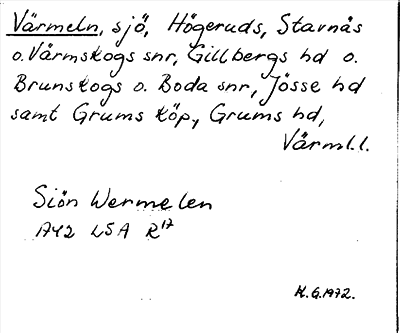 Värmeln, sjö, Högeruds, Stavnäs
o. Värmskogs snr, Gillbergs hd o.
Brunskogs o. Boda snr, Jösse hd
samt Grums köp, Grums hd,
Värml.l.
Siön Wermelen
1742 LSA R17
K.G.1972.